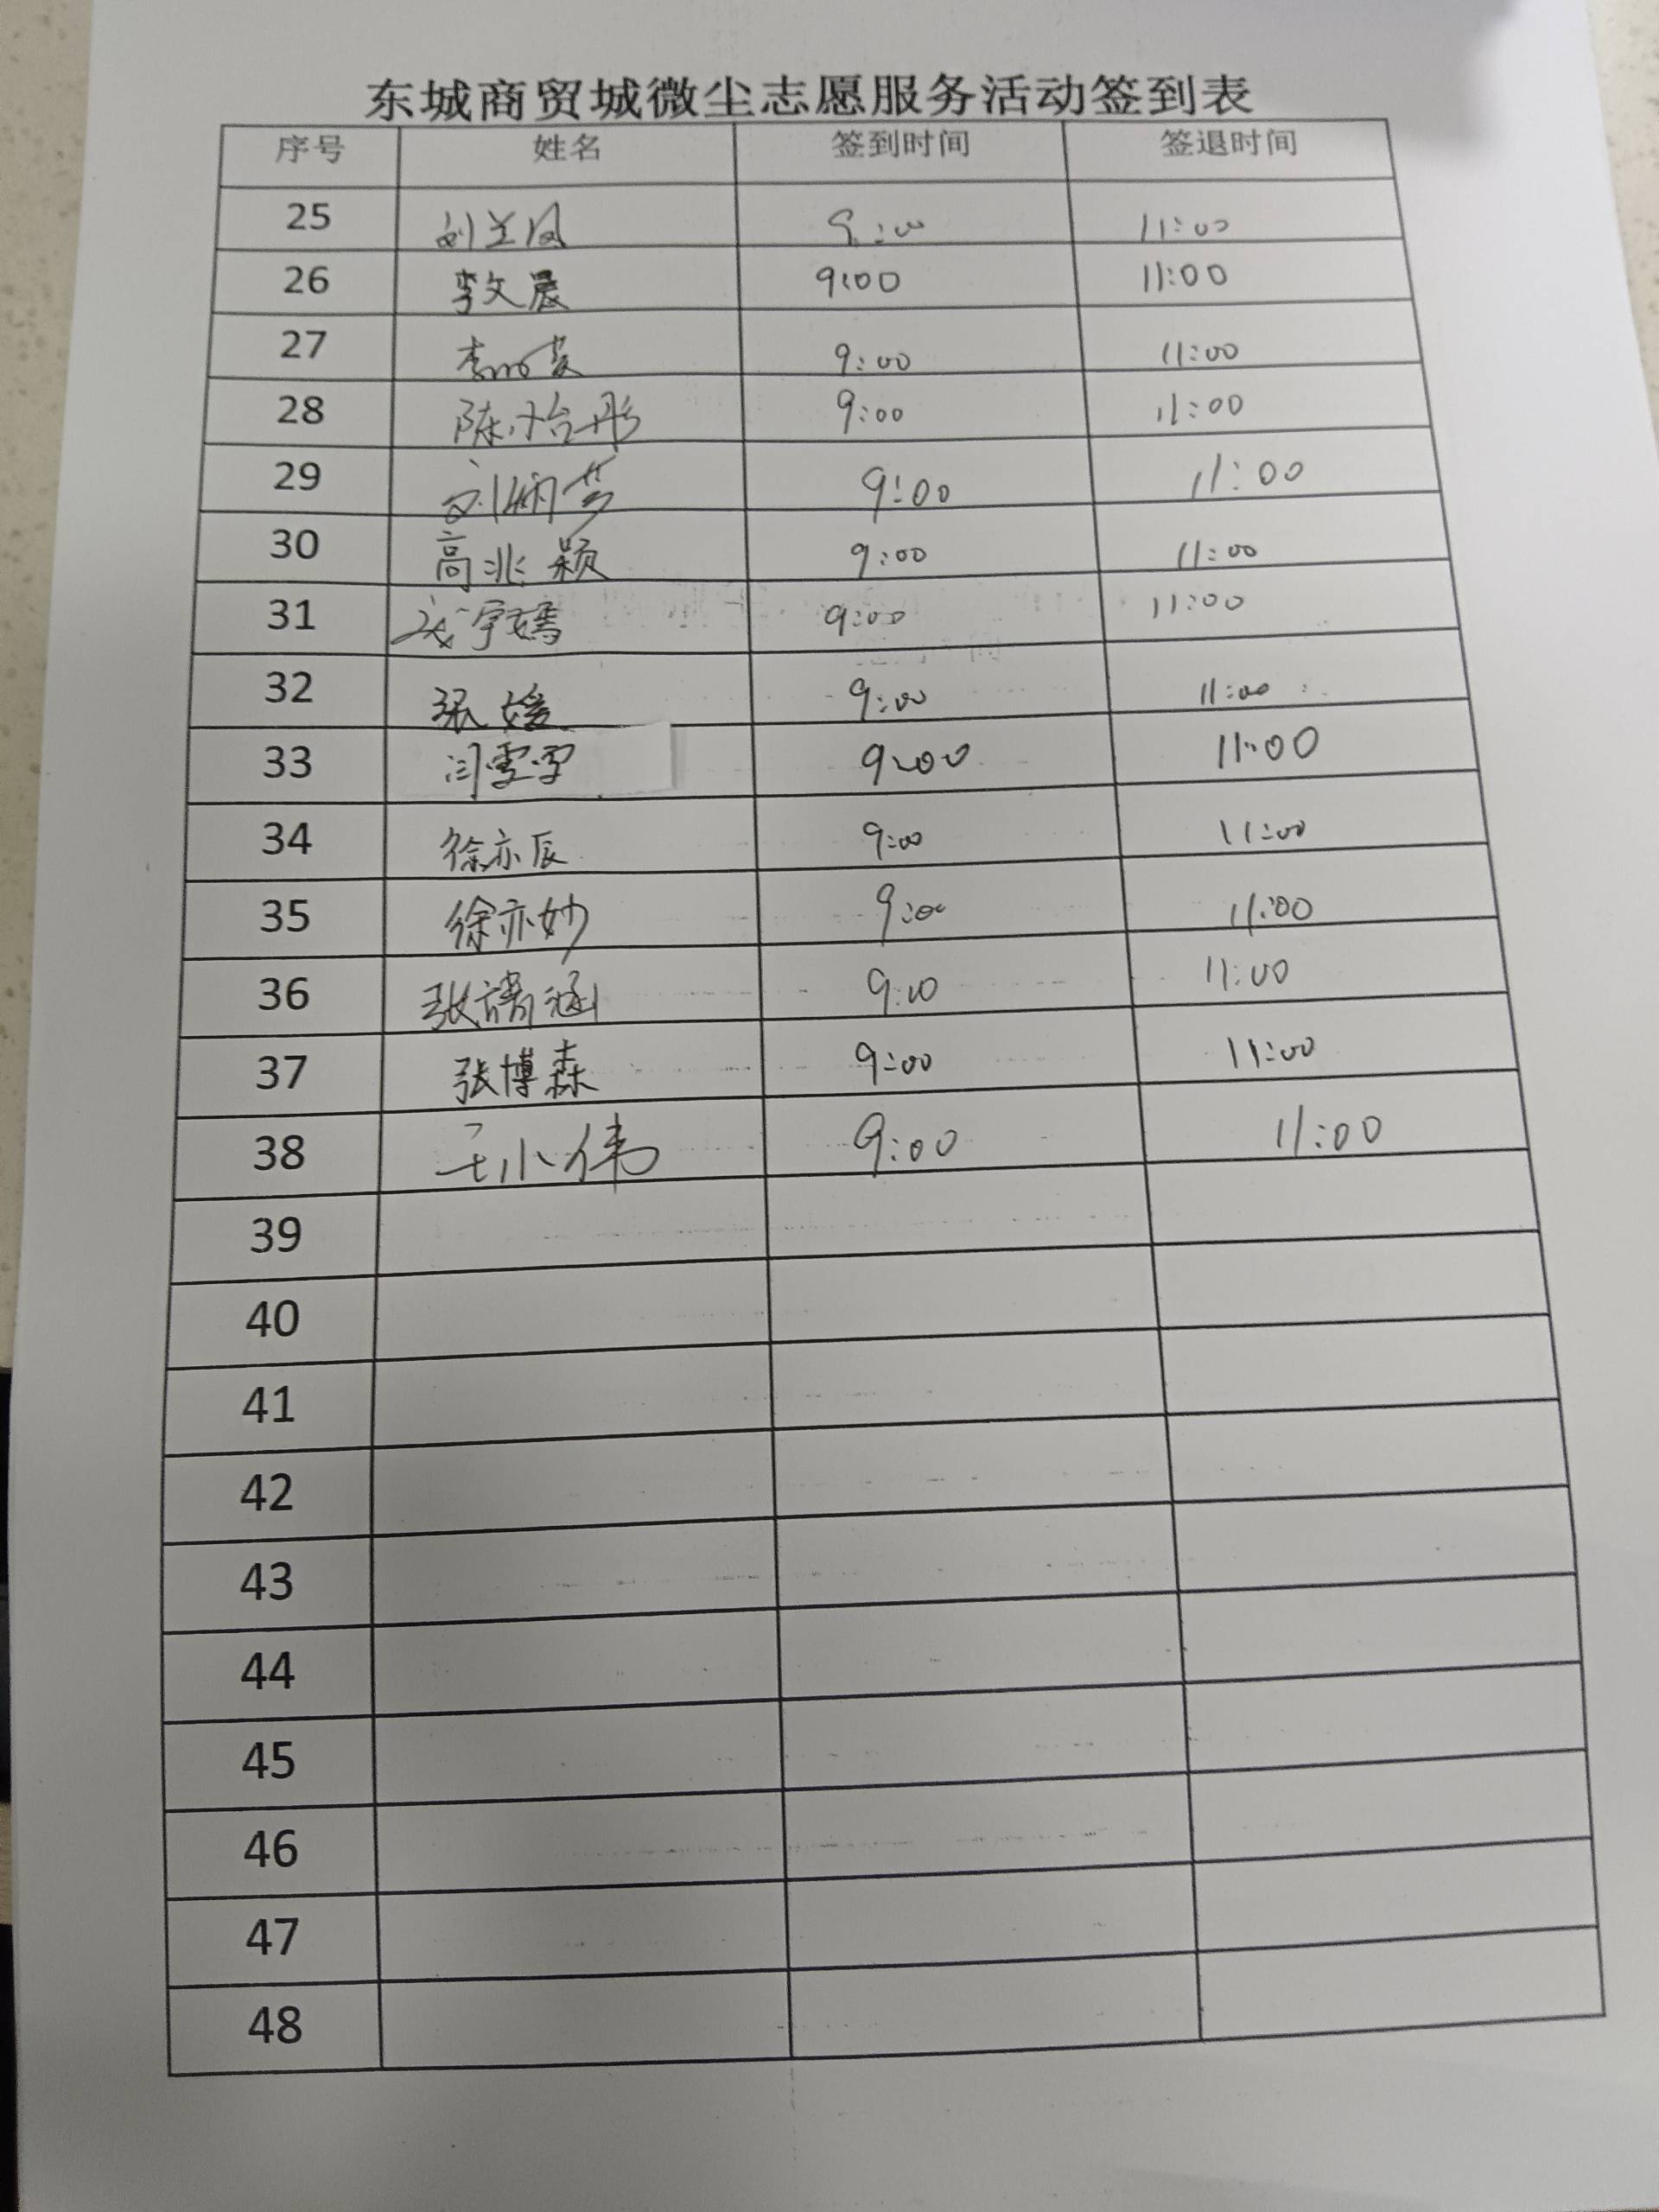 东城商贸城微尘志愿服务活动签到表
序号 姓名 签到时间 签退时间
25 刘兰凤 9:00 11:00
26 李文晨 9:00 11:00
27 李 9:00 11:00
28 陈怡彤 9:00 11:00
29 刘炳芳 9:00 11:00
30 高兆颖 9:00 11:00
31 宇嫣 9:00 11:00
32 张媛 9:00 11:00
33 闫雪雪 9:00 11:00
34 徐亦辰 9:00 11:00
35 徐亦妙 9:00 11:00
36 张涵 9:00 11:00
37 张博森 9:00 11:00
38 王小伟 9:00 11:00
39
40
41
42
43
44
45
46
47
48